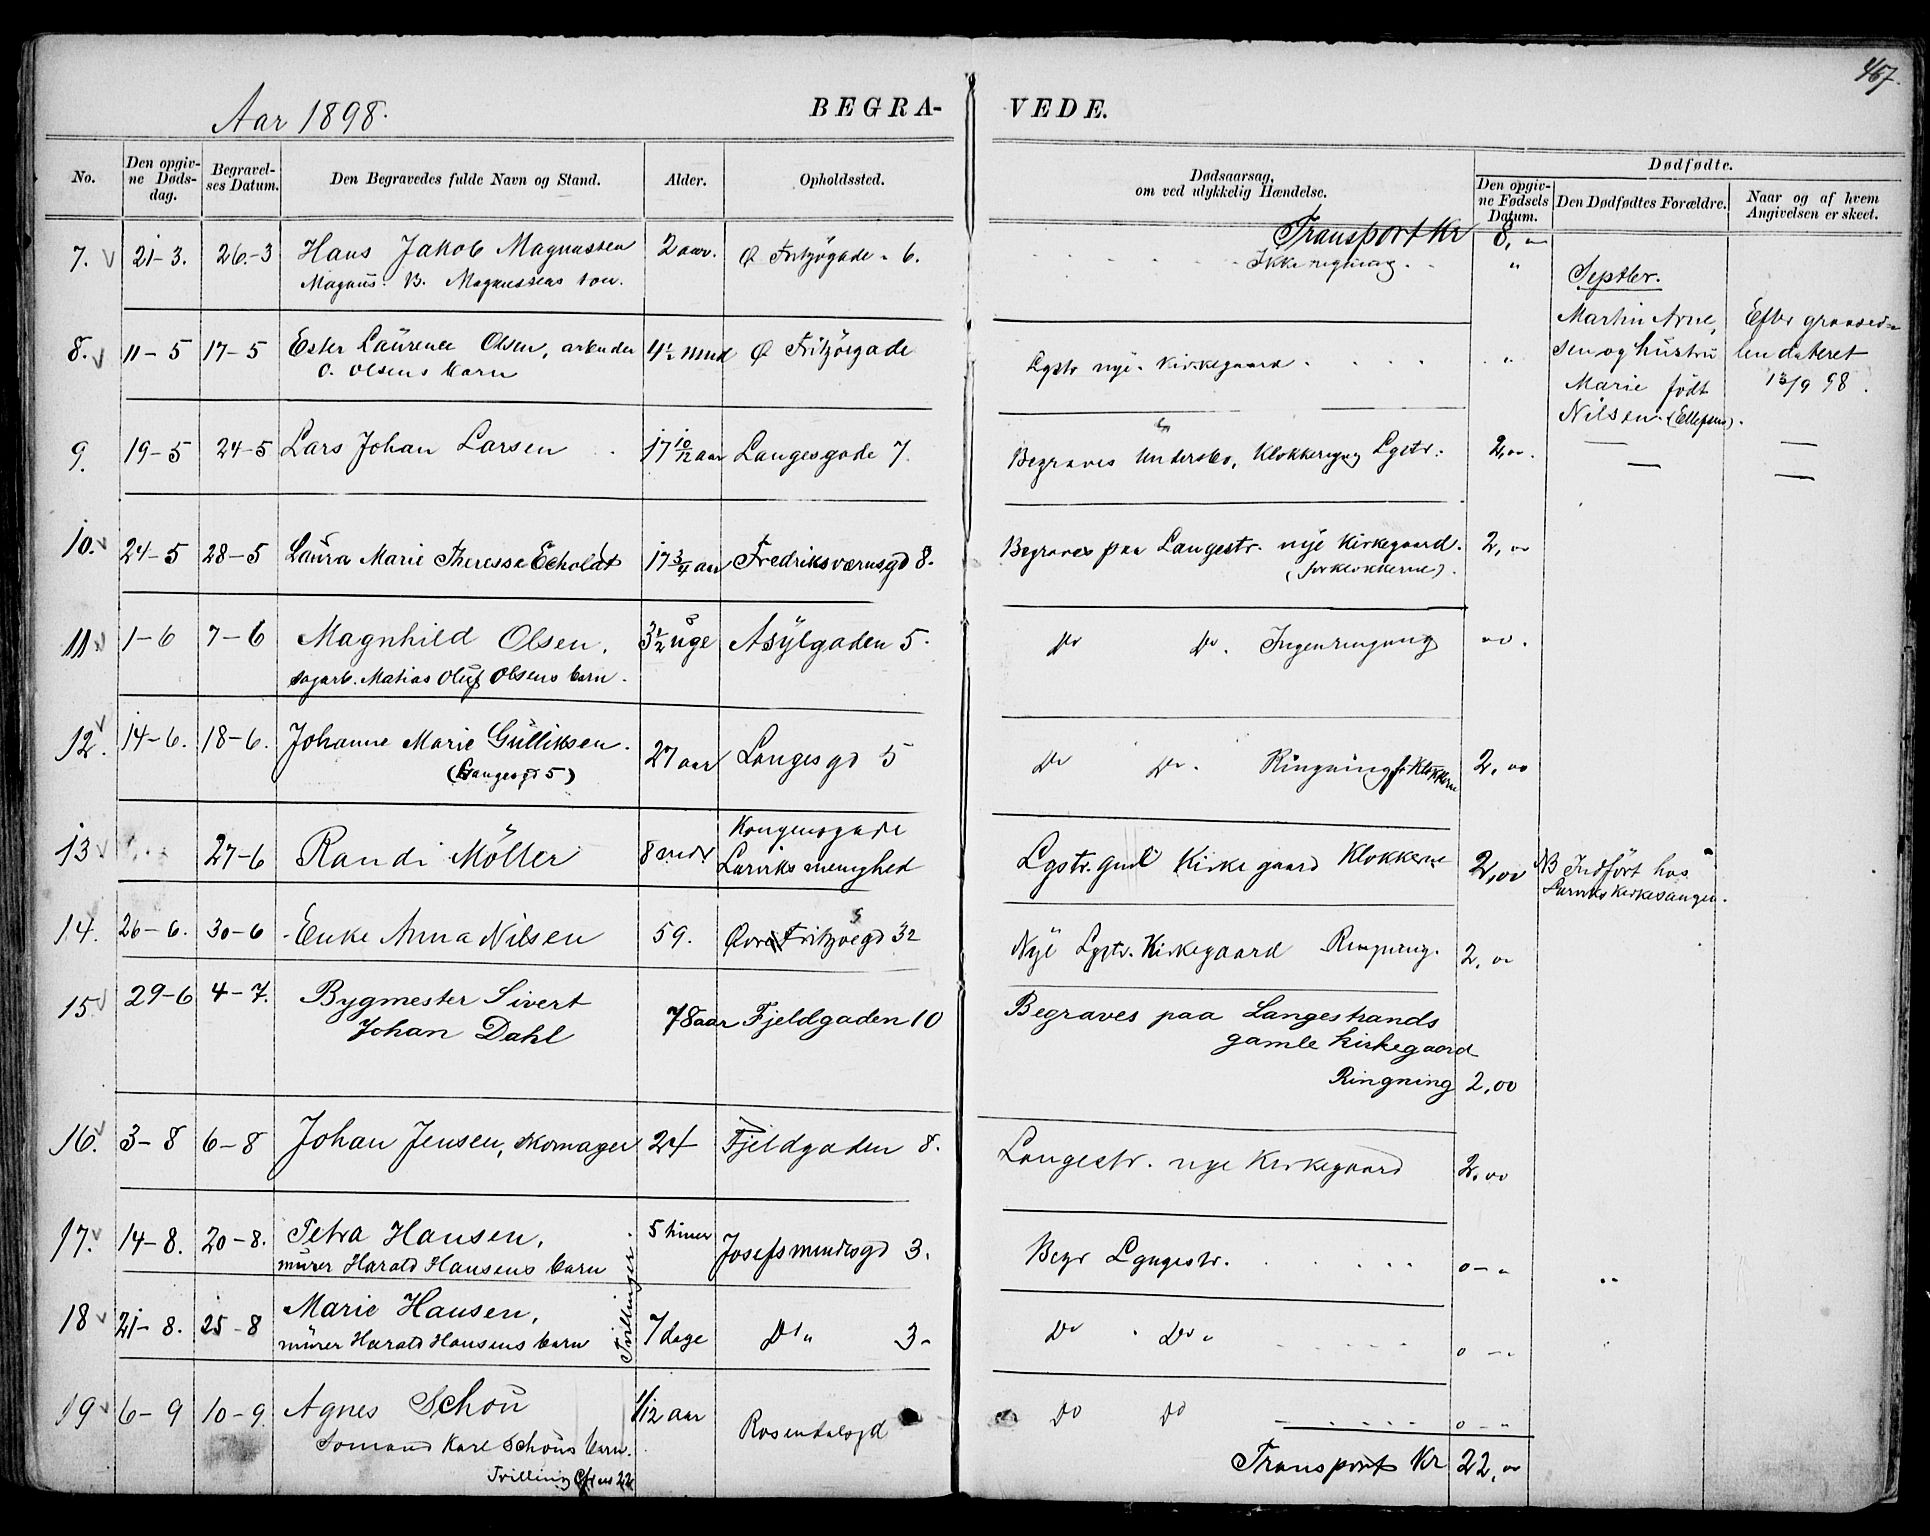 457.
Aar 1898.
BEGRA-
VEDE.
No.
Den opgiv-
ne Døds-
dag.
Begravel-
ses Datum.
Den Begravedes fulde Navn og Stand.
Alder.
Opholdssted.
Dødsaarsag,
om ved ulykkelig Hændelse.
Dødfødte.
Den opgiv-
ne Fødsels
Datum.
Den Dødfødtes Forældre.
Naar og af hvem
Angivelsen er skeet.
Transport Kr 8,"
7. 21-3. 26-3 Hans Jakob Magnussen 2 aar. Ø Fritzøgade 6. Ikke ringning. "
Magnus. B. Magnussens søn.
Septbr.
Martin Arne,
sen og hustru
Marie født
Nilsen. (Ellefsen).
13/9 98.
8. 11-5 17-5 Ester Laurence Olsen, arbeider 4½ mnd Ø Fritzøegade Lgstr nye Kirkegaard "
O. Olsens barn
9. 19-5 24-5 Lars Johan Larsen 17 10/12 aar Langesgade 7. Begraves Undersbo, Klokkeringning Lgstr. 2,00.
10. 24-5 28-5 Laura Marie Theresse Echoldt 17 3/4 aar Fredriksværnsgd 8. Begraves paa Langestr. nye Kirkegaard. 2,00
(for klokkerne).
11 1-6 7-6 Magnhild Olsen. 3½ uge Asylgaden 5. Do Do. Ingen ringning 00.
sagarb. Matias Oluf Olsens barn.
12. 14-6. 18-6. Johanne Marie Gulliksen. 27 aar Langesgd 5 Do Do. Ringning f. Klokkerne 2,00
(Langesgd 5)
13 27-6 Randi Möller Kongensgade
Larviks menighed
Lgstr. gml Kirkegaard Klokkerne 2,00 NB Indført hos
Larviks Kirkesanger.
14. 26-6. 30-6 Enke Anna Nilsen 59. Øvre Fritzøegd 32 Nye Lgstr. Kirkegaard Ringning. 2,00
15 29-6 4-7. Bygmester Sivert
Johan Dahl
78 aar Fjeldgaden 10 Begraves paa Langestrands
gamle kirkegaard
Ringning 2,00
16. 3-8 6-8 Johan Jensen, skomager 24 Fjeldgaden 8. Langestr. nye Kirkegaard 2,00
17. 14-8. 20-8. Petra Hansen, 5 timer Josefsmindesgd 3. Begr Langestr. 0-"
murer Harald Hansens barn
Tvillinger.
18 21-8. 25-8 Marie Hansen, 7 dage Do " 3- Do " Do " 0-"
murer Harald Hansens barn
19 6-9 10-9 Agnes Schou 1/12 aar Rosendalsgd Do Do 0-"
Sømand Karl Schous barn.
Tvilling
Transport Kr 22,00